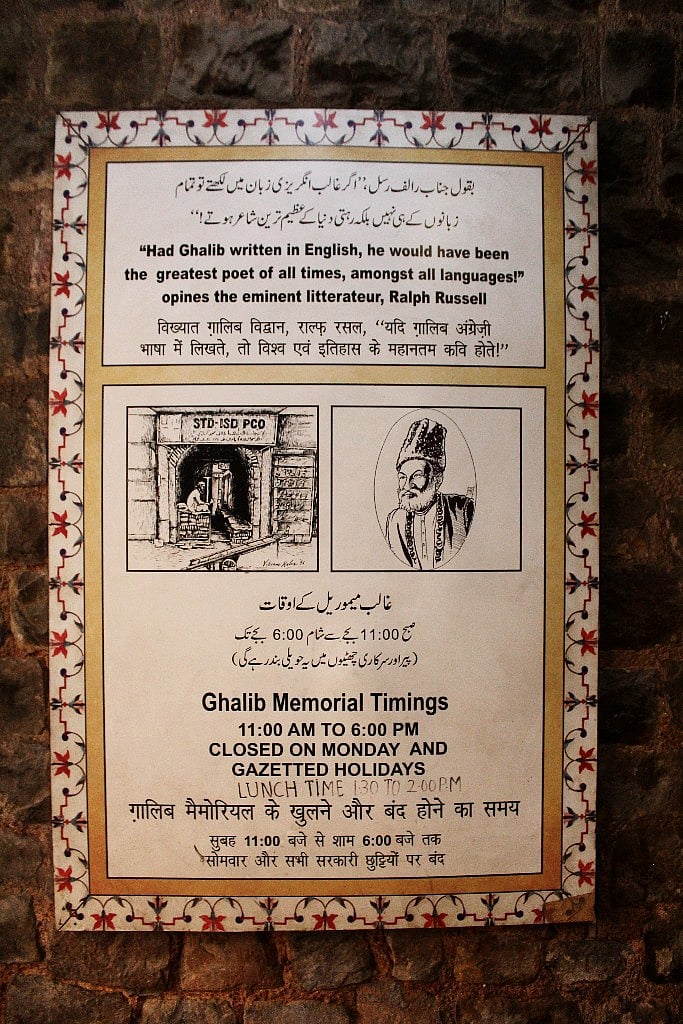 بقول جناب رالف رسل، ”اگر غالب انگریزی زبان میں لکھتے تو تمام
زبانوں کے ہی نہیں بلکہ رہتی دنیا کے عظیم ترین شاعر ہوتے!“
“Had Ghalib written in English, he would have been
the greatest poet of all times, amongst all languages!”
opines the eminent litterateur, Ralph Russell
विख्यात ग़ालिब विद्वान, राल्फ़ रसल, “यदि ग़ालिब अंग्रेज़ी
भाषा में लिखते, तो विश्व एवं इतिहास के महानतम कवि होते!”
STD-ISD PCO
غالب میموریل کے اوقات
صبح 11:00 بجے سے شام 6:00 بجے تک
(پیر اور سرکاری چھٹیوں میں یہ حویلی بند رہے گی)
Ghalib Memorial Timings
11:00 AM TO 6:00 PM
CLOSED ON MONDAY AND
GAZETTED HOLIDAYS
LUNCH TIME 1:30 TO 2:00 P.M
ग़ालिब मैमोरियल के खुलने और बंद होने का समय
सुबह 11:00 बजे से शाम 6:00 बजे तक
सोमवार और सभी सरकारी छुट्टियों पर बंद